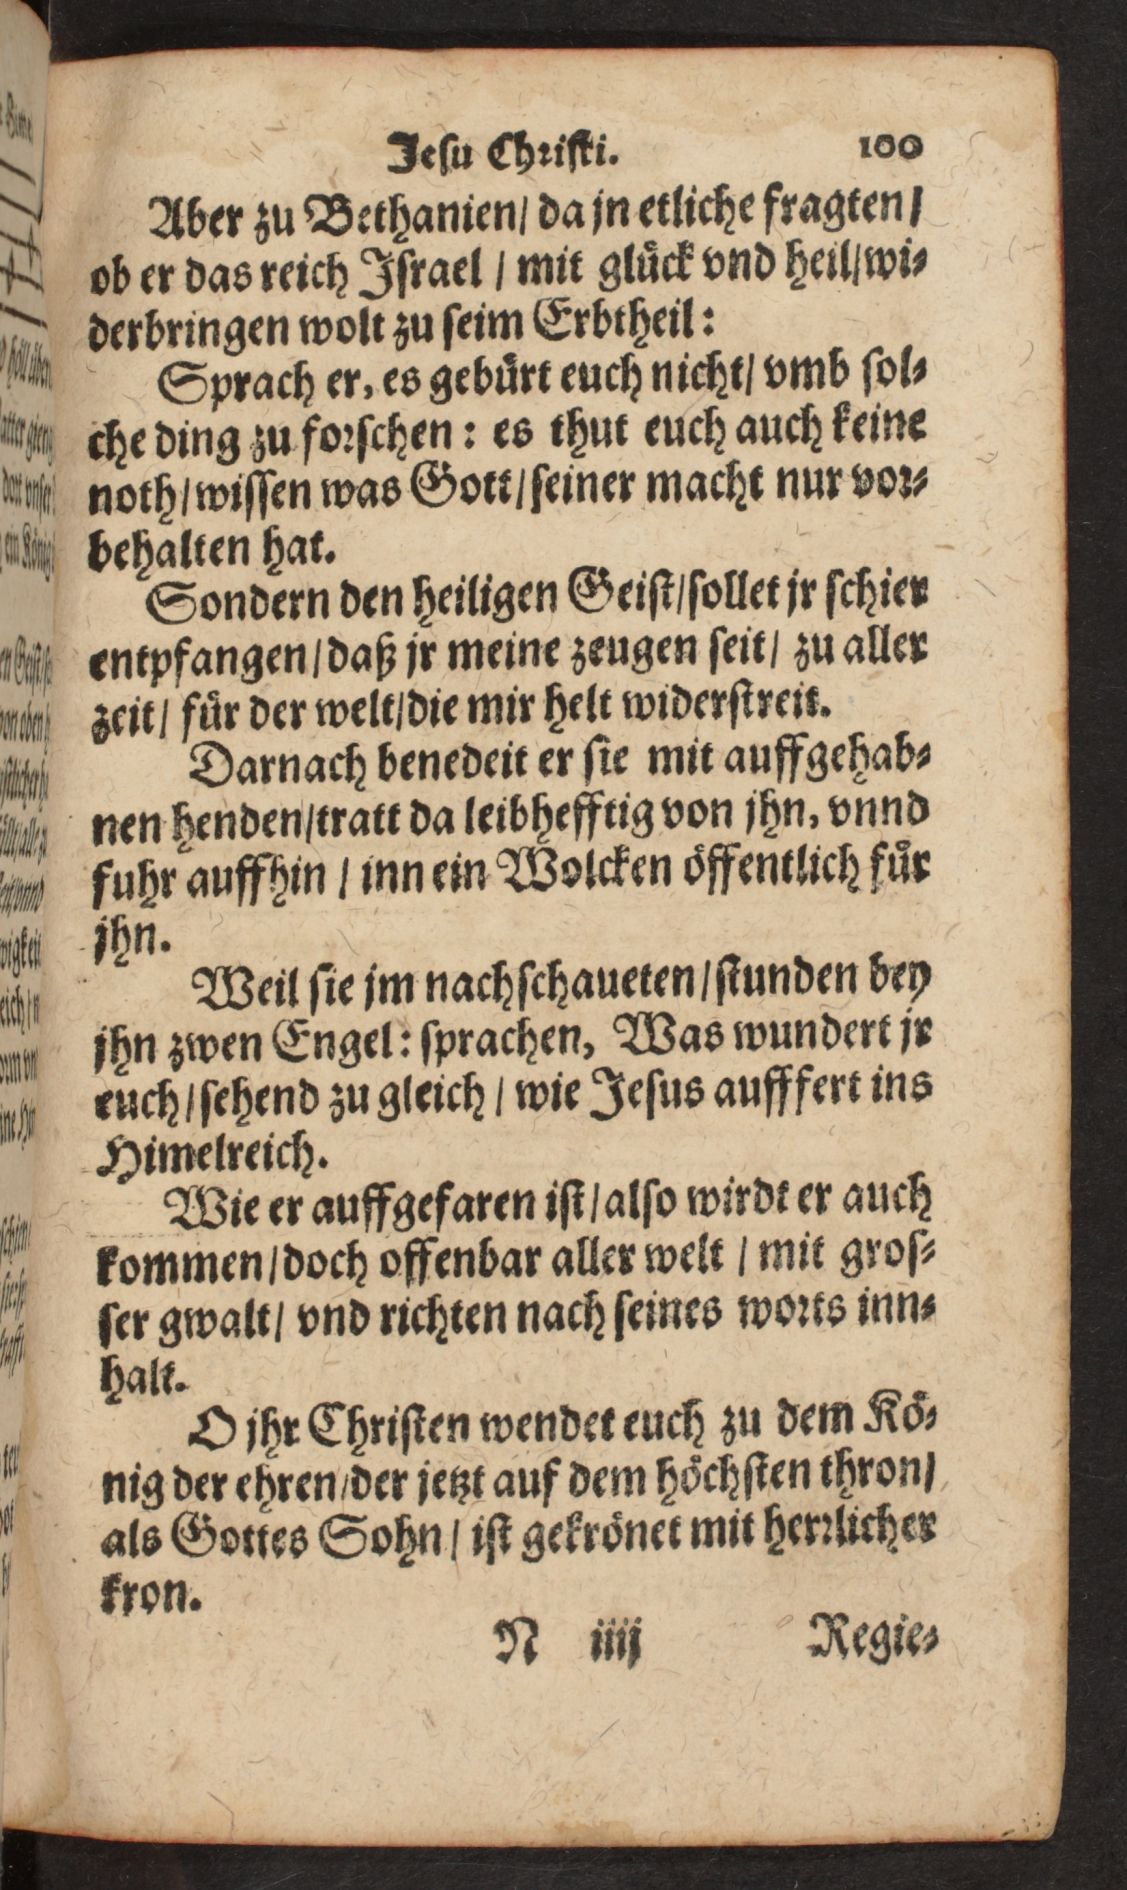 Jesu Christi. 100
Aber zu Bethanien/ da jn etliche fragten/
ob er das reich Jsrael / mit glück vnd heil/ wi⸗
derbringen wolt zu seim Erbtheil:
Sprach er, es gebürt euch nicht/ vmb sol⸗
che ding zu forschen: es thut euch auch keine
noth/ wissen was Gott/ seiner macht nur vor⸗
behalten hat.
Sondern den heiligen Geist/ sollet jr schier
entpfangen/ daß jr meine zeugen seit/ zu aller
zeit/ für der welt/ die mir helt widerstreit.
Darnach benedeit er sie mit auffgehab⸗
nen henden/ tratt da leibhefftig von jhn, vnnd
fuhr auffhin / inn ein Wolcken öffentlich für
jhn.
Weil sie jm nachschaueten/ stunden bey
jhn zwen Engel: sprachen, Was wundert jr
euch/ sehend zu gleich / wie Jesus aufffert ins
Himelreich.
Wie er auffgefaren ist/ also wirdt er auch
kommen/ doch offenbar aller welt / mit gros⸗
ser gwalt/ vnd richten nach seines worts inn⸗
halt.
O jhr Christen wendet euch zu dem Kö⸗
nig der ehren/ der jetzt auf dem höchsten thron/
als Gottes Sohn/ ist gekrönet mit herrlicher
kron.
N iiij Regie⸗